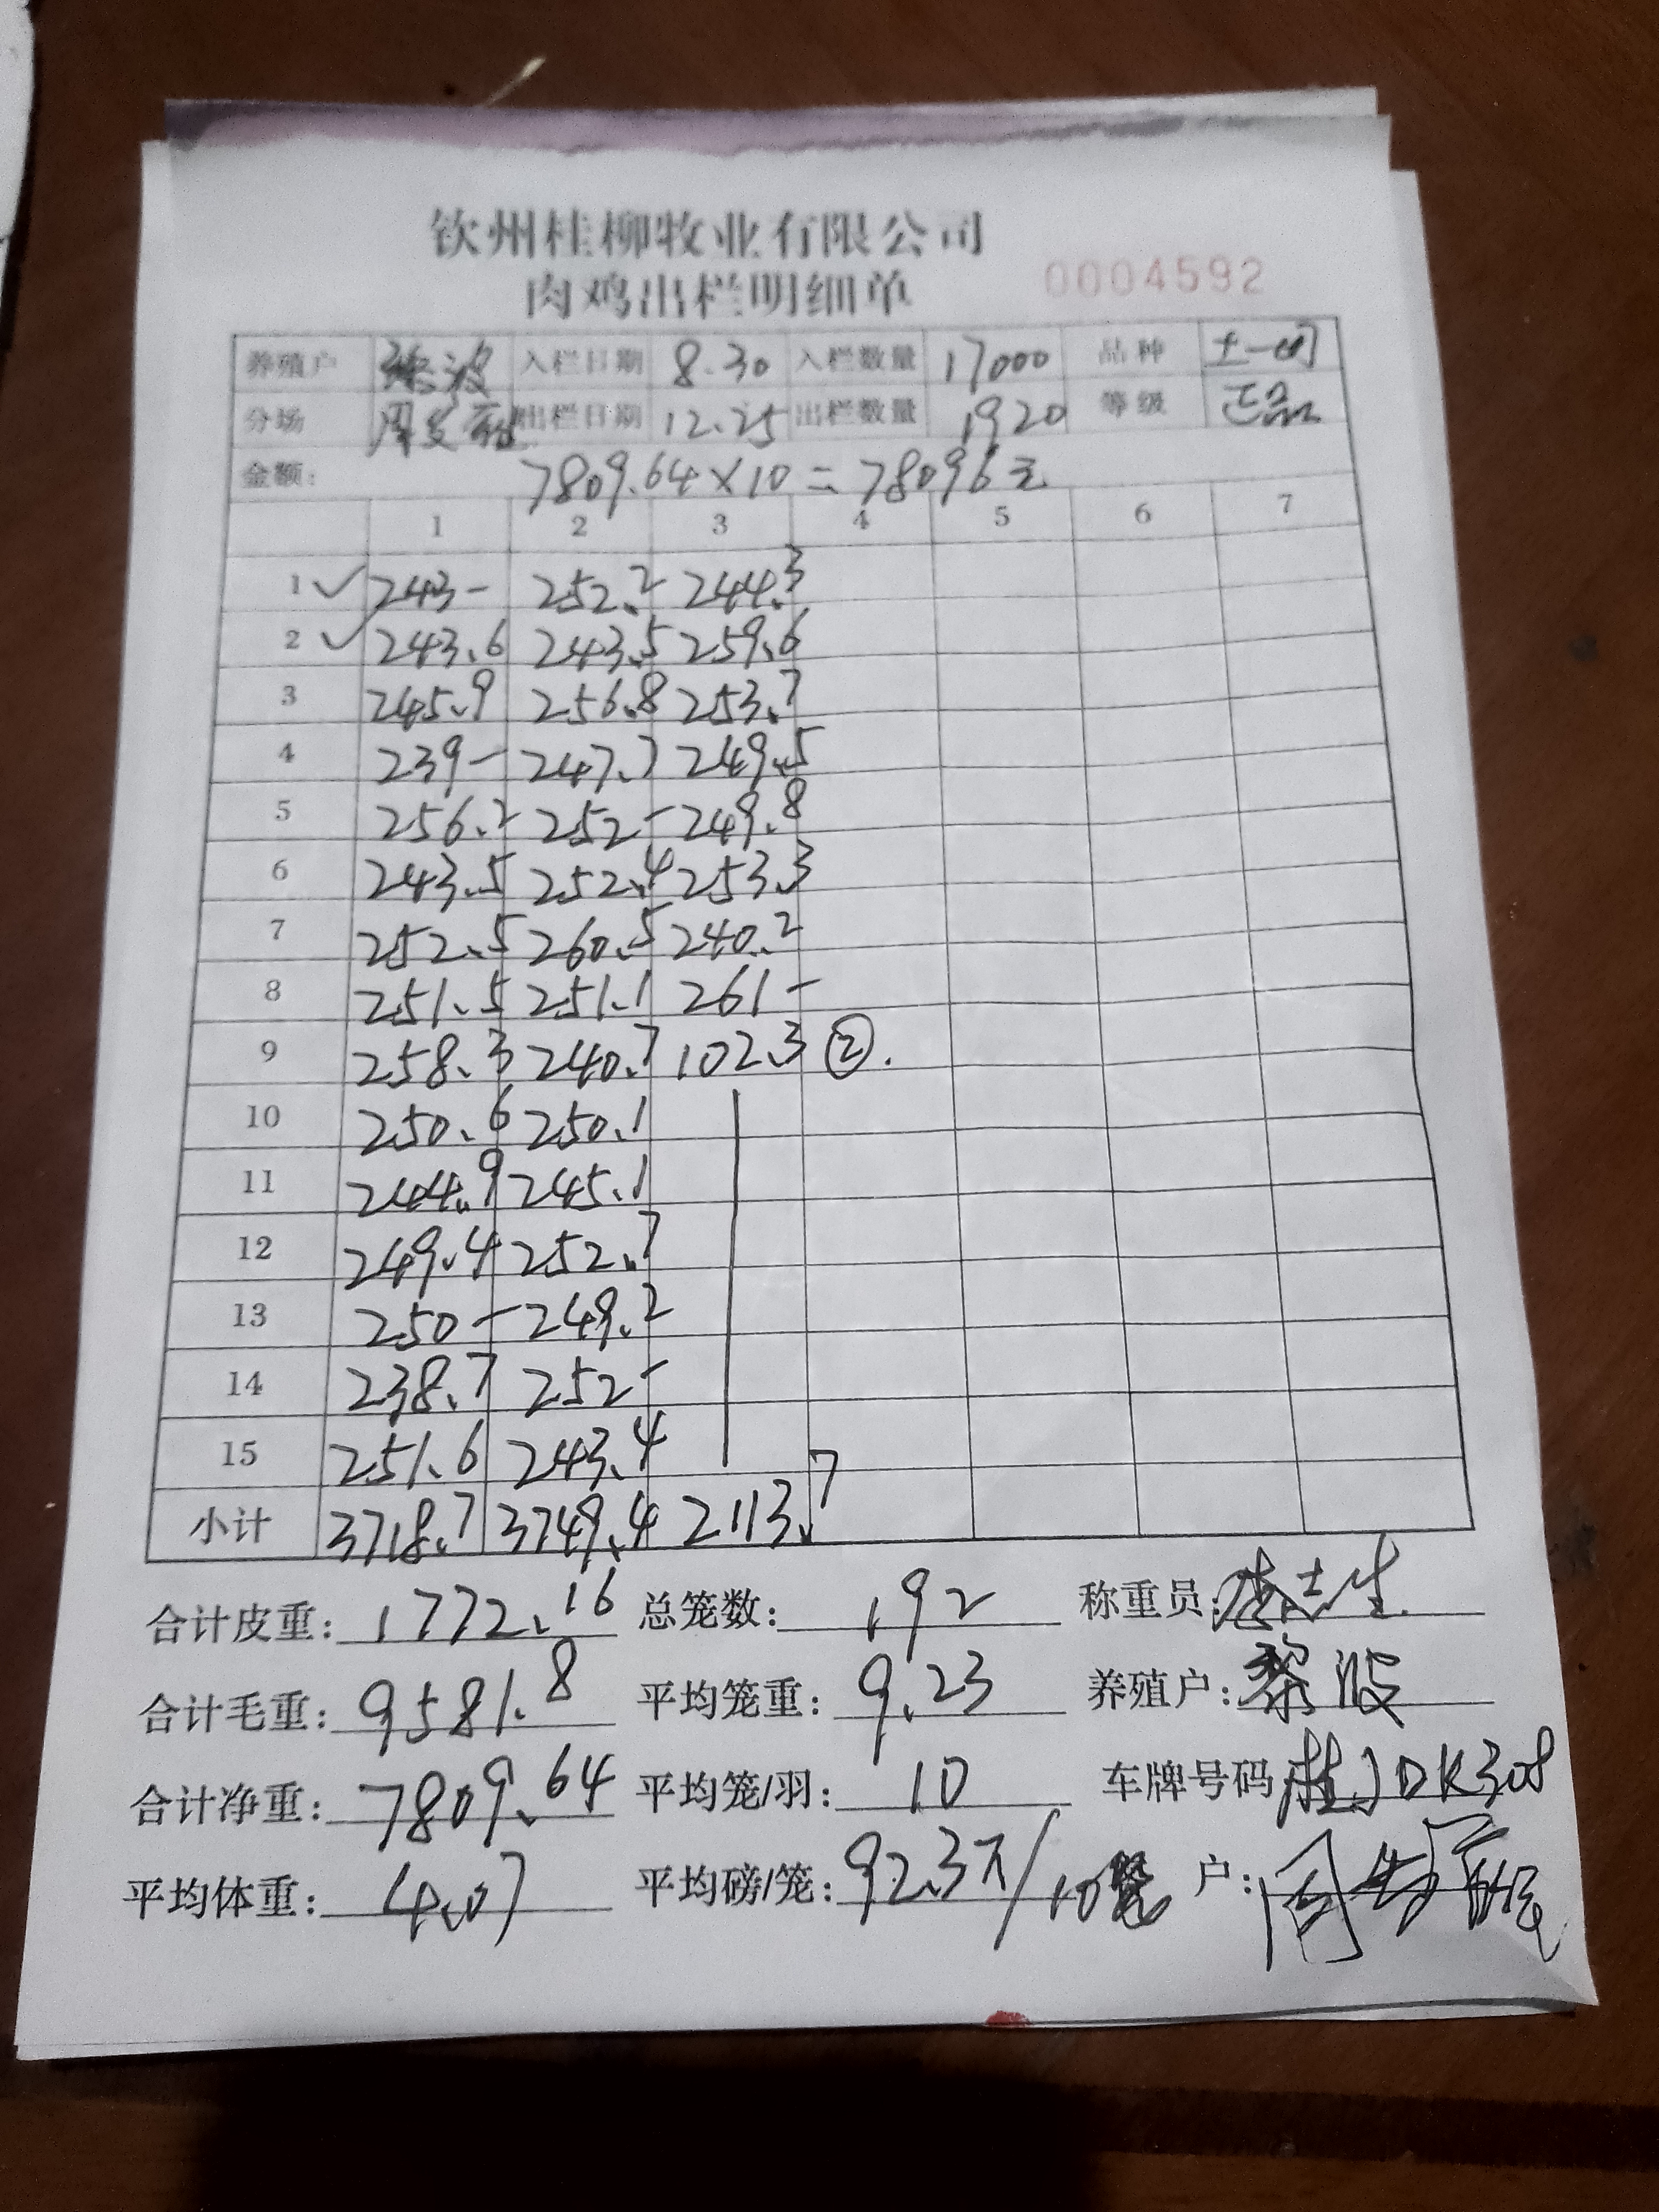 钦州桂柳牧业有限公司
肉鸡出栏明细单 0004592
养殖户 黎波 入栏日期 8.30 入栏数量 17000 品种 土一
分场 出栏日期 12.25 出栏数量 1920 等级 正品
金额: 7809.64×10=78096元
1 2 3 4 5 6 7
1 ✓ 243- 252.2 244.3
2 ✓ 243.6 243.5 259.6
3 245.9 256.8 253.7
4 239- 247.7 249.5
5 256.2 252- 249.8
6 243.5 252.4 253.3
7 252.5 260.5 240.2
8 251.5 251.1 261-
9 258.3 240.7 102.3 ②.
10 250.6 250.1
11 244.9 245.1
12 249.4 252.7
13 250- 249.2
14 238.7 252-
15 251.6 243.4
小计 3718.7 3749.4 2113.7
合计皮重: 1772.16 总笼数: 192 称重员:
合计毛重: 9581.8 平均笼重: 9.23 养殖户: 黎波
合计净重: 7809.64 平均笼/羽: 10 车牌号码 桂J DK308
平均体重: 4.07 平均磅/笼: 92.3斤/10笼 户: